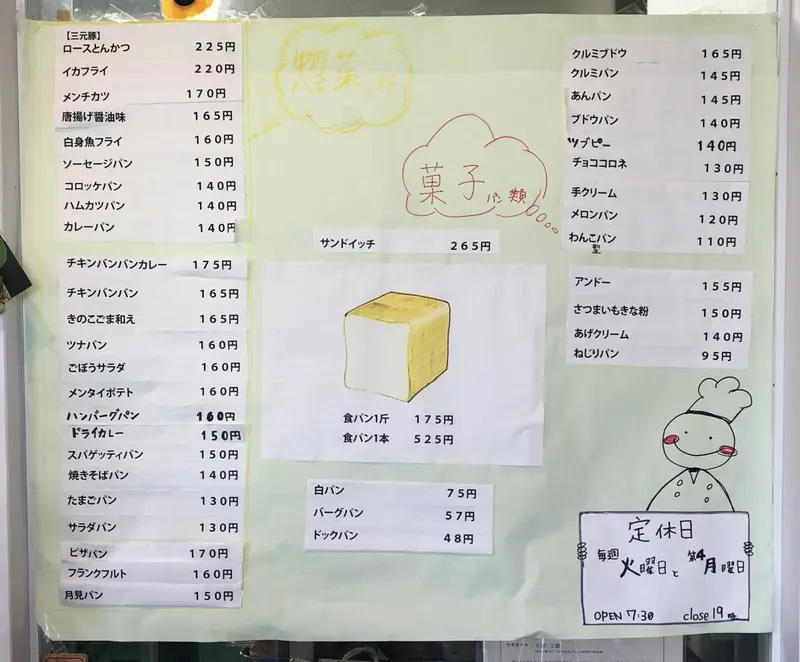 惣菜パン
【三元豚】
ロースとんかつ 225円
イカフライ 220円
メンチカツ 170円
唐揚げ醤油味 165円
白身魚フライ 160円
ソーセージパン 150円
コロッケパン 140円
ハムカツパン 140円
カレーパン 140円
チキンバンバンカレー 175円
チキンバンバン 165円
きのこごま和え 165円
ツナパン 160円
ごぼうサラダ 160円
メンタイポテト 160円
ハンバーグパン 160円
ドライカレー 150円
スパゲッティパン 150円
焼きそばパン 140円
たまごパン 130円
サラダパン 130円
ピザパン 170円
フランクフルト 160円
月見パン 150円
サンドイッチ 265円
食パン1斤 175円
食パン1本 525円
白パン 75円
バーグパン 57円
ドックパン 48円
菓子パン類
クルミブドウ 165円
クルミパン 145円
あんパン 145円
ブドウパン 140円
ツブピー 140円
チョココロネ 130円
手クリーム 130円
メロンパン 120円
わんこパン 110円
アンドー 155円
さつまいもきな粉 150円
あげクリーム 140円
ねじりパン 95円
定休日
毎週火曜日と第4月曜日
OPEN 7:30 close 19時